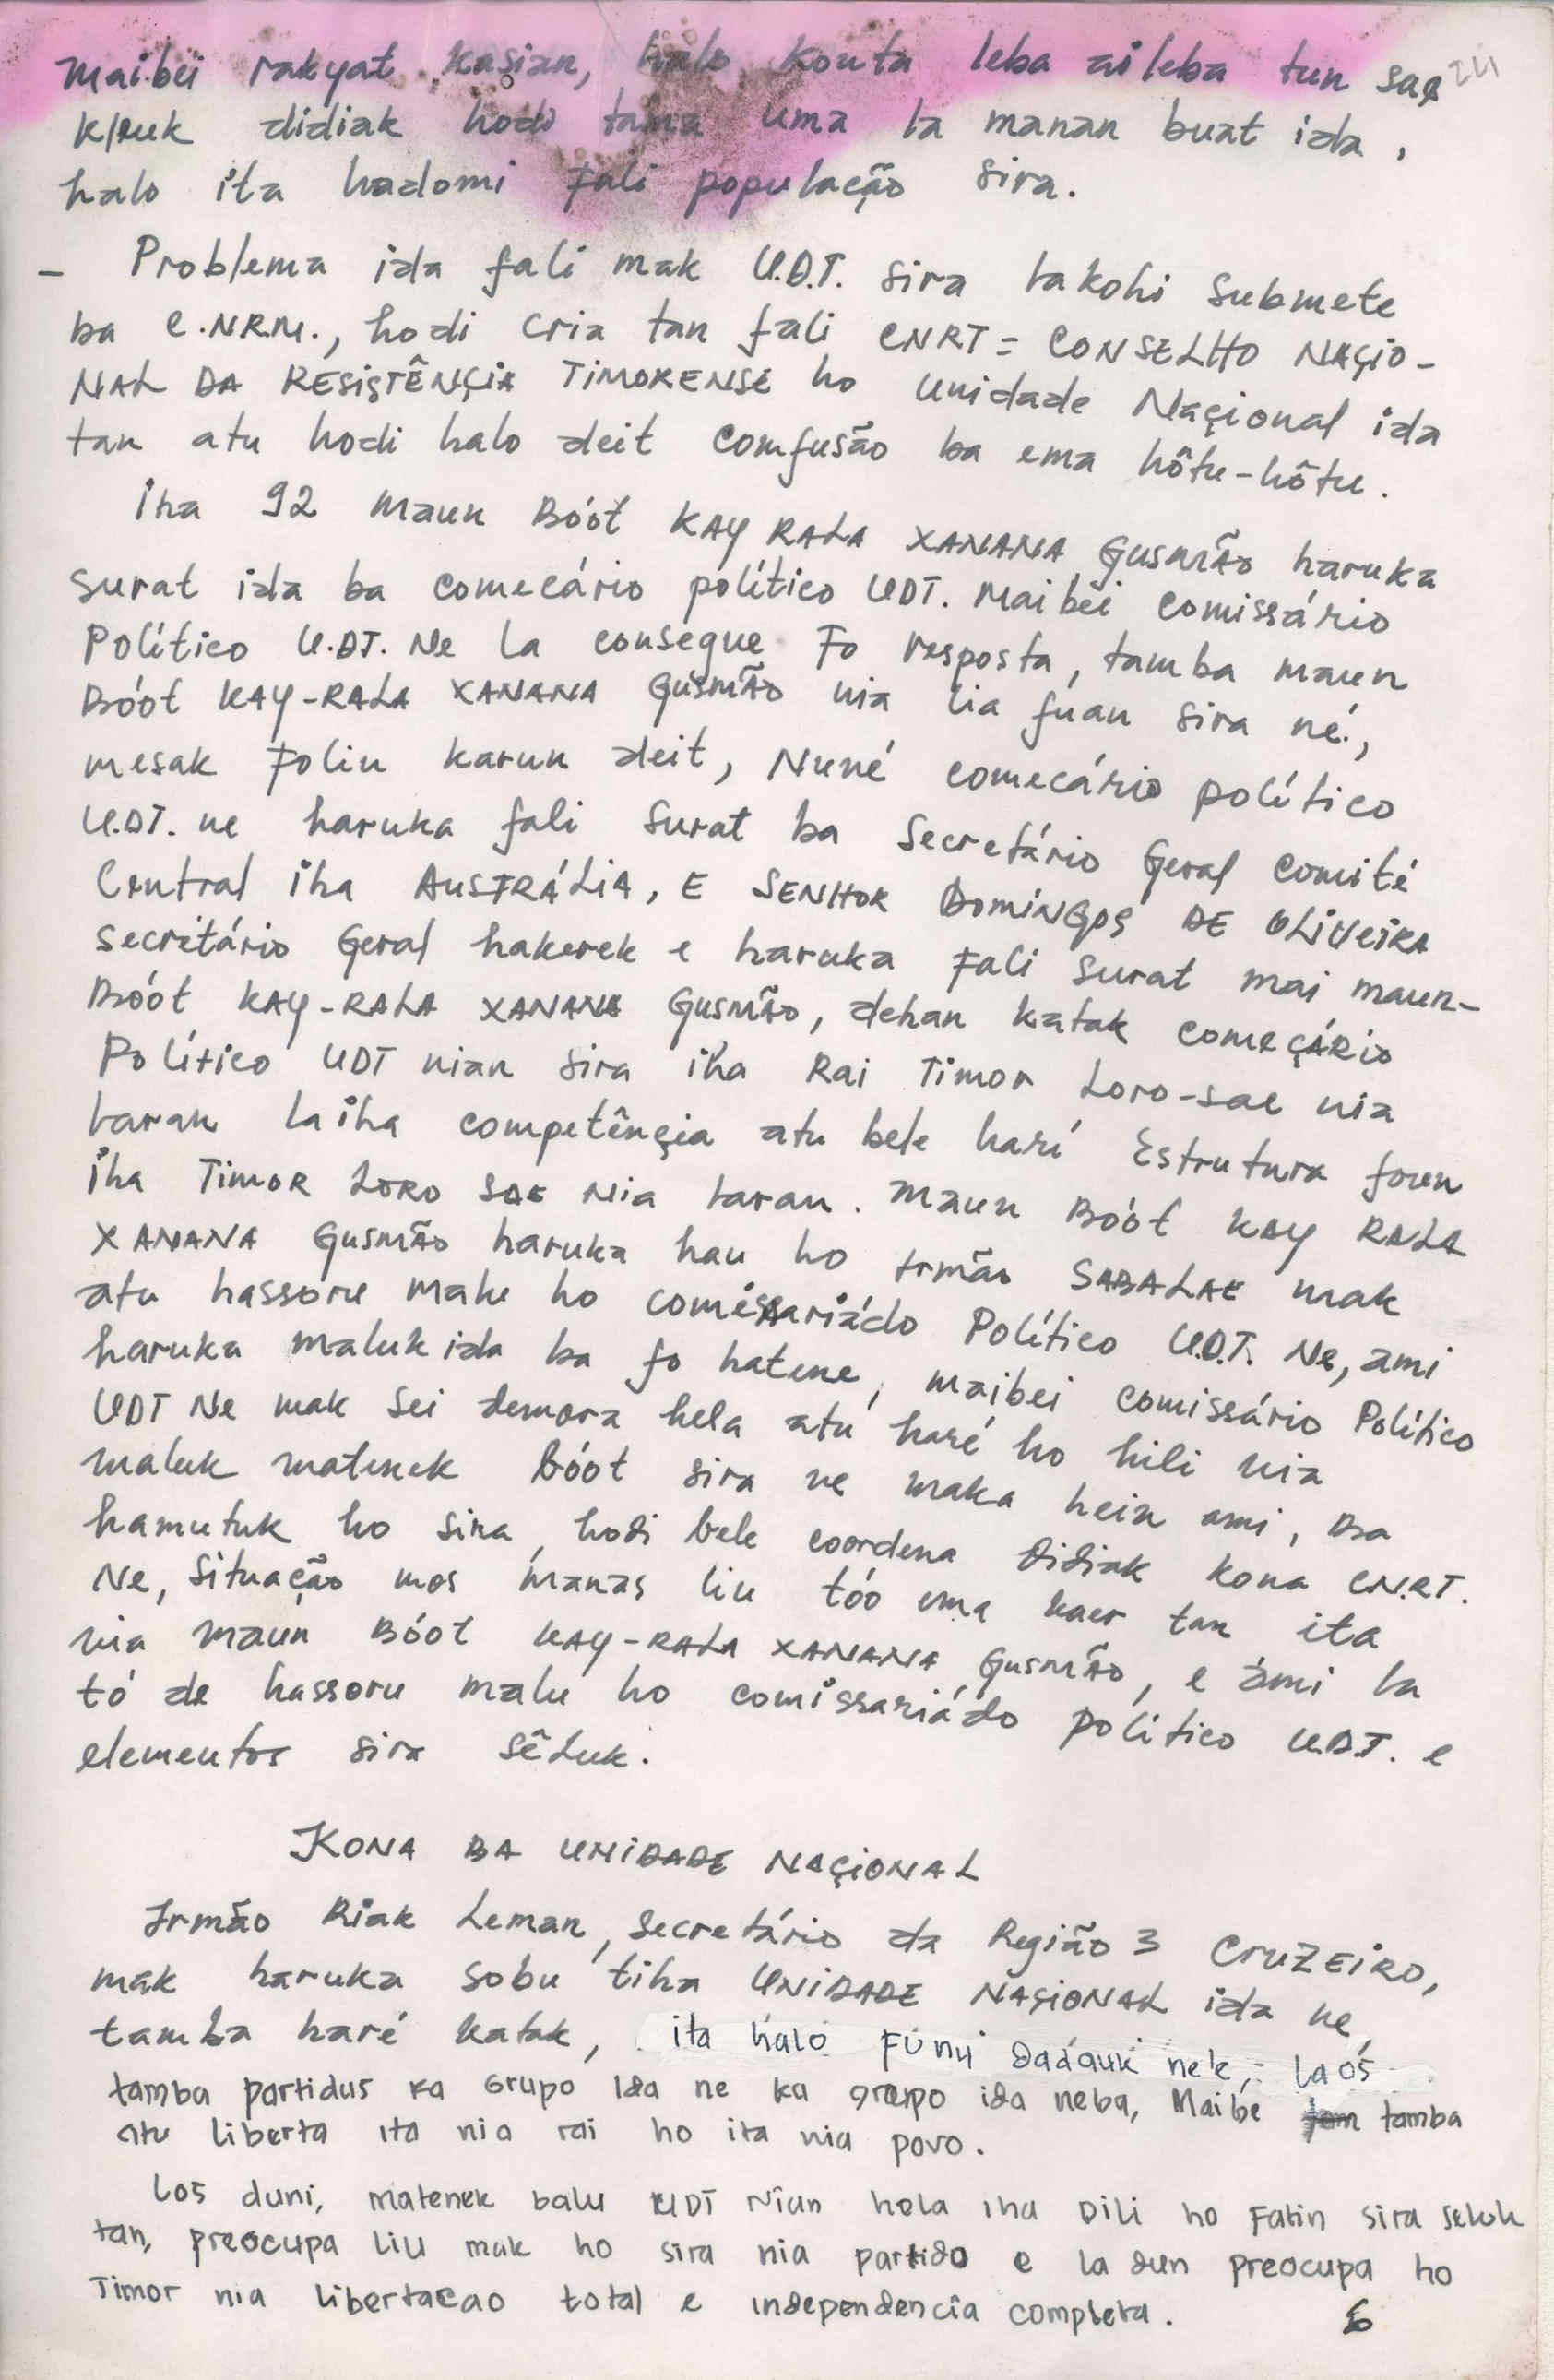 Maibeï rakyat kasian, halo konta leba aileba tun sae 24
kleuk didiak hodi tama uma la manan buat ida,
halo ita hadomi fali população sira.
- Problema ida fali mak U.D.T. sira lakohi submete
ba C.NRM., hodi cria tan fali CNRT = CONSELHO NAÇIO-
NAL DA RESISTÊNÇIA TIMORENSE ho Unidade Naçional ida
tan atu hodi halo deit comfusão ba ema hôtu-hôtu.
iha 92 maun Bóot KAY RALA XANANA GUSMÃO haruka
surat ida ba comecário político UDT. Maibëi comissário
Político U.DT. Ne la consegue Fo resposta, tamba maun
Bóot KAY-RALA XANANA GUSMÃO nia lia fuan sira né,
mesak Folin karun deit, Nuné comecário político
U.DT. ne haruka fali surat ba Secretário Geral comité
Central iha AUSTRÁLIA, E SENHOR DOMINGOS DE OLIVEIRA
secretário Geral hakerek e haruka Fali surat mai maun-
Bóot KAY-RALA XANANA GUSMÃO, dehan katak comeÇÁRio
Político UDT nian sira iha Rai Timor Loro-sae nia
laran laiha competênçia atu bele harí Estrutura foun
iha TIMOR LORO SAE Nia laran. Maun Bóot KAY RALA
XANANA GUSMÃO haruka hau ho Irmão SABALAE mak
atu hassoru malu ho comissariádo Político U.D.T. Ne, ami
haruka maluk ida ba fo hatene, maibei comissário Político
UDT Ne mak sei demora hela atu haré ho hili nia
maluk matenek bóot sira ne maka hein ami, Ba
hamutuk ho sira, hodi bele coordena didiak kona CN.RT.
Ne, Situação mos manas liu tóo ema kaer tan ita
nia maun Bóot KAY-RALA XANANA GUSMÃO, e ámi la
tó de hassoru malu ho comissariádo político U.DT. e
elementos sira sêLuk.
KONA BA UNIDADE NAÇIONAL
Irmão Riak Leman, Secretário da Região 3 CRUZEIRO,
mak haruka sobu tiha UNIDADE NAÇIONAL ida ne,
tamba haré katak, ita halo Funu dadauk ne'e, laós
tamba partidus ka Grupo Ida ne ka grupo ida neba, Maibe tamba
atu liberta ita nia rai ho ita nia povo.
Los duni, matenek balu UDT Nian hela iha Dili ho Fatin sira seluk
tan, preocupa liu mak ho sira nia partido e la dun preocupa ho
Timor nia libertacao total e independencia completa. 6